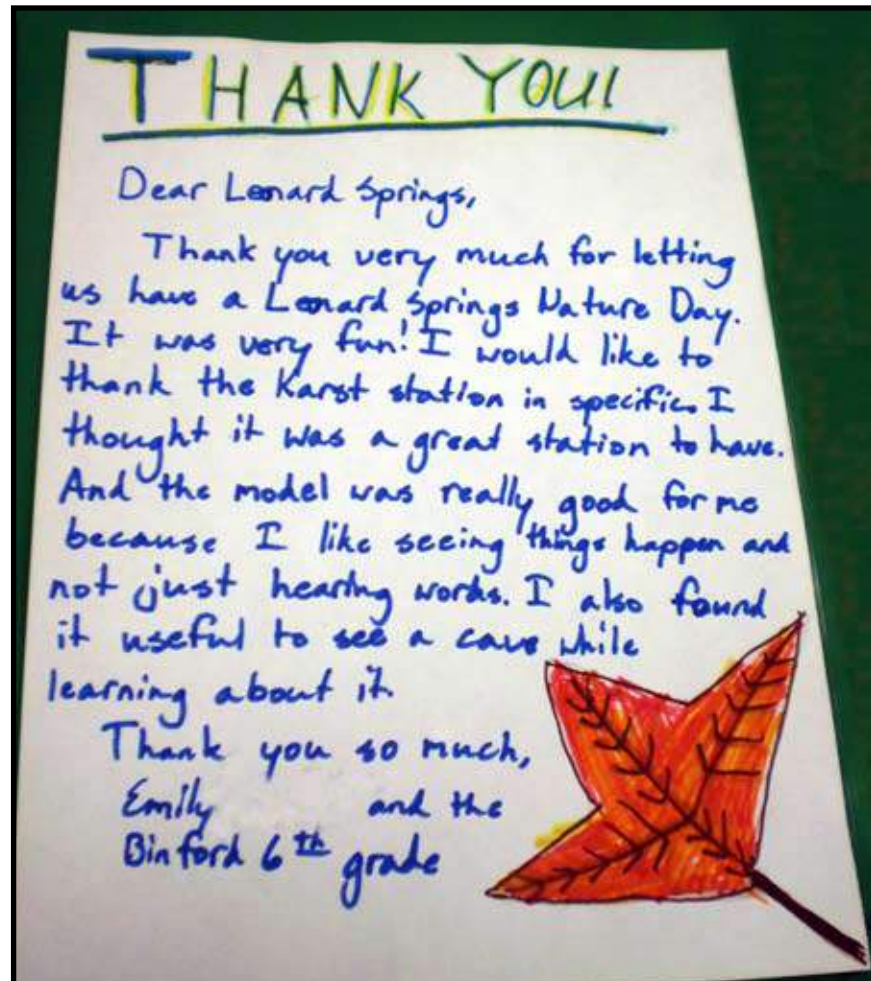 THANK YOU!
Dear Leonard Springs,
Thank you very much for letting
us have a Leonard Springs Nature Day.
It was very fun! I would like to
thank the Karst station in specific. I
thought it was a great station to have.
And the model was really good for me
because I like seeing things happen and
not just hearing words. I also found
it useful to see a cave while
learning about it.
Thank you so much,
Emily and the
Binford 6th grade